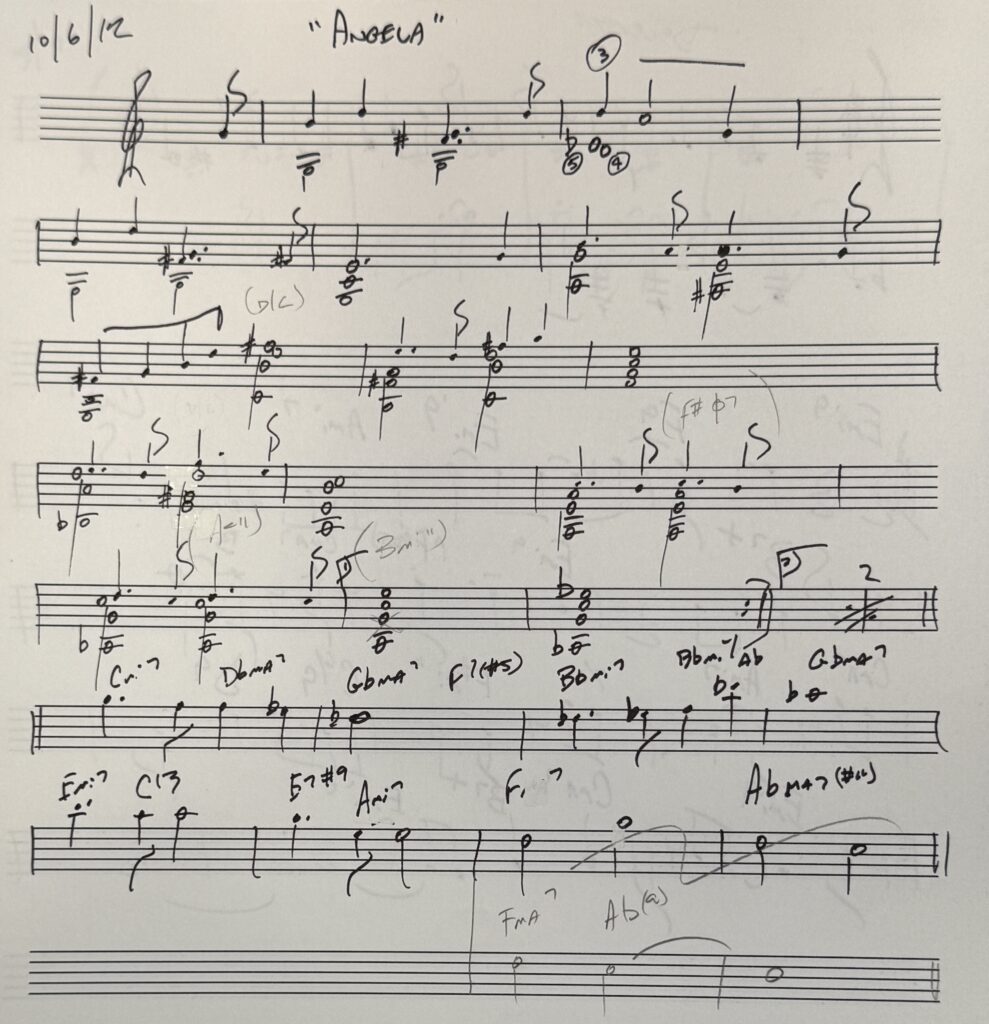 10/6/12 "ANGELA"
3
5 4
(D/C)
(F#ø7)
(Bmi11)
1
2
2
Cmi7 DbMA7 GbMA7 F7(#5) Bbmi7 Bbmi7/Ab GbMA7
Emi7 C13 E7#9 Ami7 AbMA7(#11)
FMA7 Ab(9)